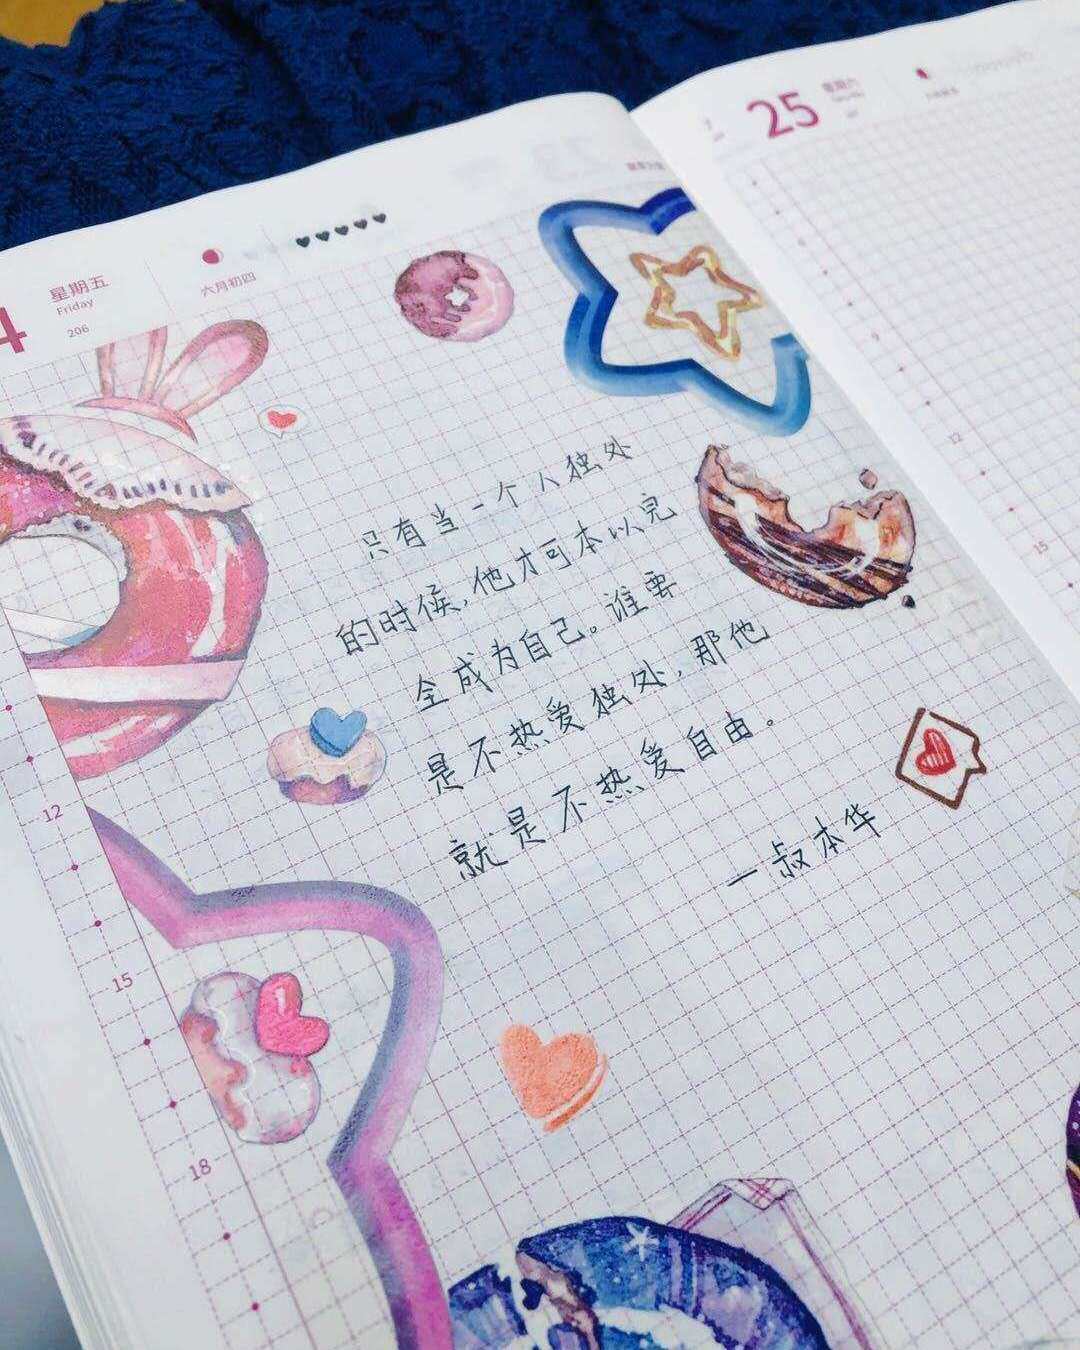 4
星期五
Friday
206
六月初四
♥♥♥♥♥
25
只有当一个人独处
的时候,他才可本以完
全成为自己。谁要
是不热爱独处,那他
就是不热爱自由。
—叔本华
12
15
18
9
12
15